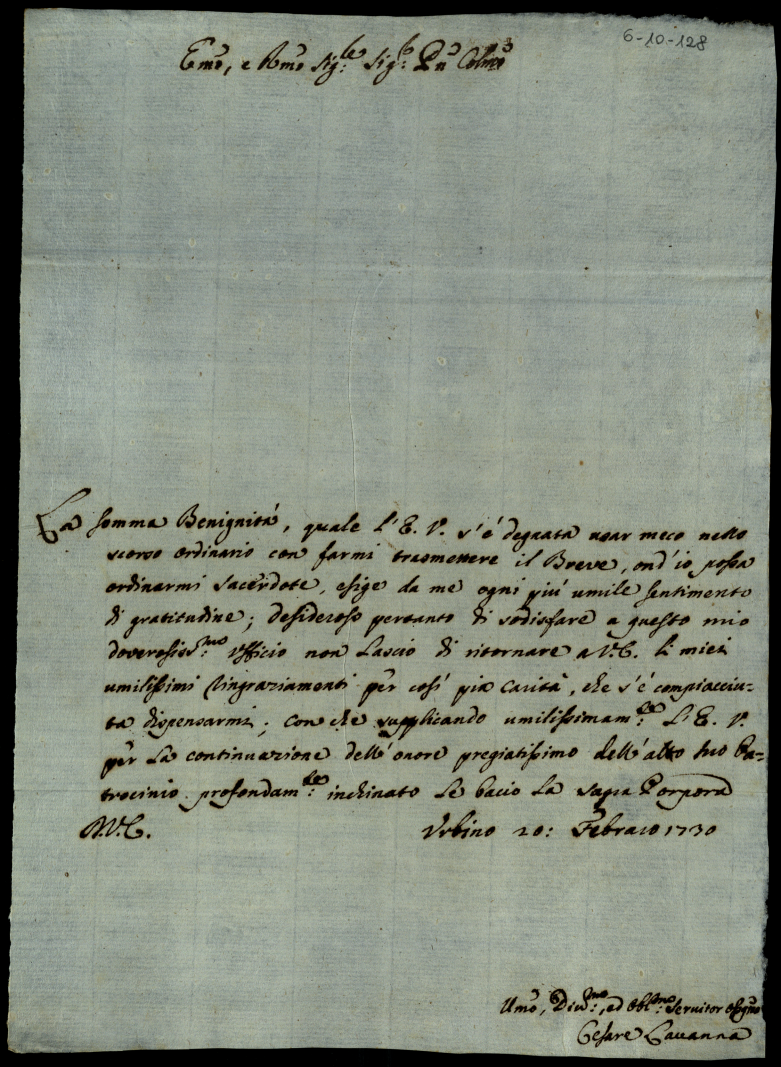 6-10-128
Emo, e Rmo Sig:re Sig:r Pn Colmo
La somma Benignità, quale l'E. V. s'è degnata usar meco nello
scorso ordinario con farmi trasmettere il Breve, ond'io possa
ordinarmi Sacerdote, esige da me ogni più umile sentimento
di gratitudine; desideroso pertanto di sodisfare a questo mio
doverosiss:mo Ufficio non lascio di ritornare a V.E. li miei
umilissimi ringraziamenti per così pia carità, che s'è compiacciu-
ta dispensarmi; con che supplicando umilissimam:te L'E. V.
per la continuazione dell'onore pregiatissimo dell'alto suo Pa-
trocinio profondam:te inchinato le bacio la sagra Porpora
D.V.E. Urbino 20: Febraro 1730
Umo, Divo:mo, ed Obl:mo Servitor Osseqmo
Cesare Lavanna